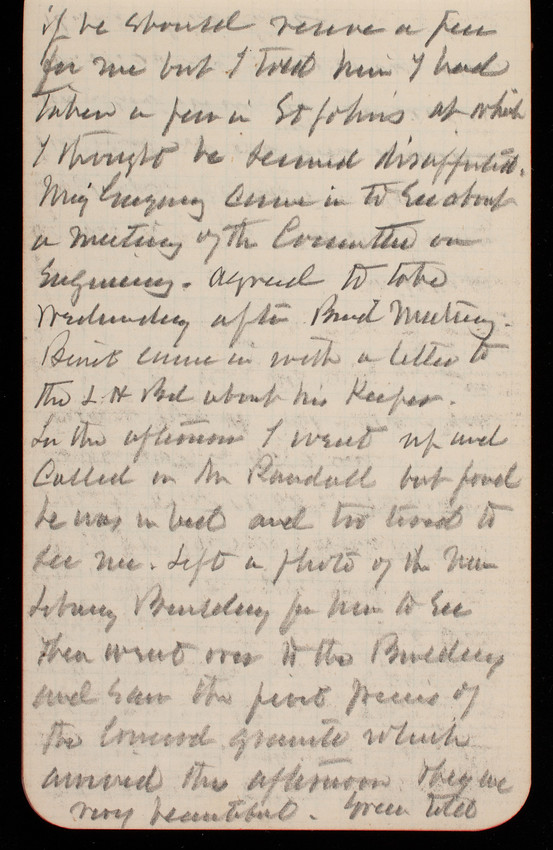 if he should reserve a pew
for me but I told him I had
taken a pew in St John's at which
I thought he seemed disappointed.
Maj Gregory came in to see about
a meeting of the Committee on
Engineering. Agreed to to be
Wednesday after Board Meeting.
came in with a letter to
the L H Bd about his Keeper.
In the afternoon I went up and
Called on Mr Randall but found
he was in bed and too tired to
see me. Left a photo of the new
Library Building for him to see
Then went over to the Building
and saw the first pieces of
the Concord granite which
arrived this afternoon they are
very beautiful. Green told